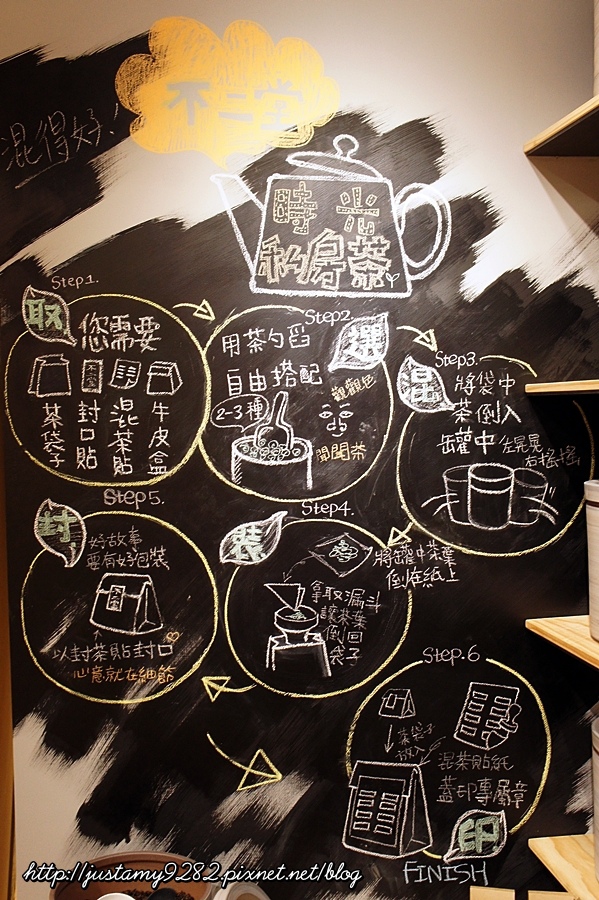 混得好!
不二堂
時光
私房茶
Step1.
取
您需要
茶袋子
封口貼
混茶貼
牛皮盒
Step2.
選
用茶勺舀
自由搭配
2-3種
觀觀色
聞聞茶
Step3.
品
將袋中
茶倒入
罐中
左晃晃
右搖搖
Step4.
裝
將罐中茶葉
倒在紙上
拿取漏斗
讓茶葉
倒回
袋子
Step5.
封
好故事
要有好包裝
以封茶貼封口
心意就在細節
Step.6
茶袋子
放入
混茶貼紙
蓋印專屬章
印
FINISH
http://justamy9282.pixnet.net/blog